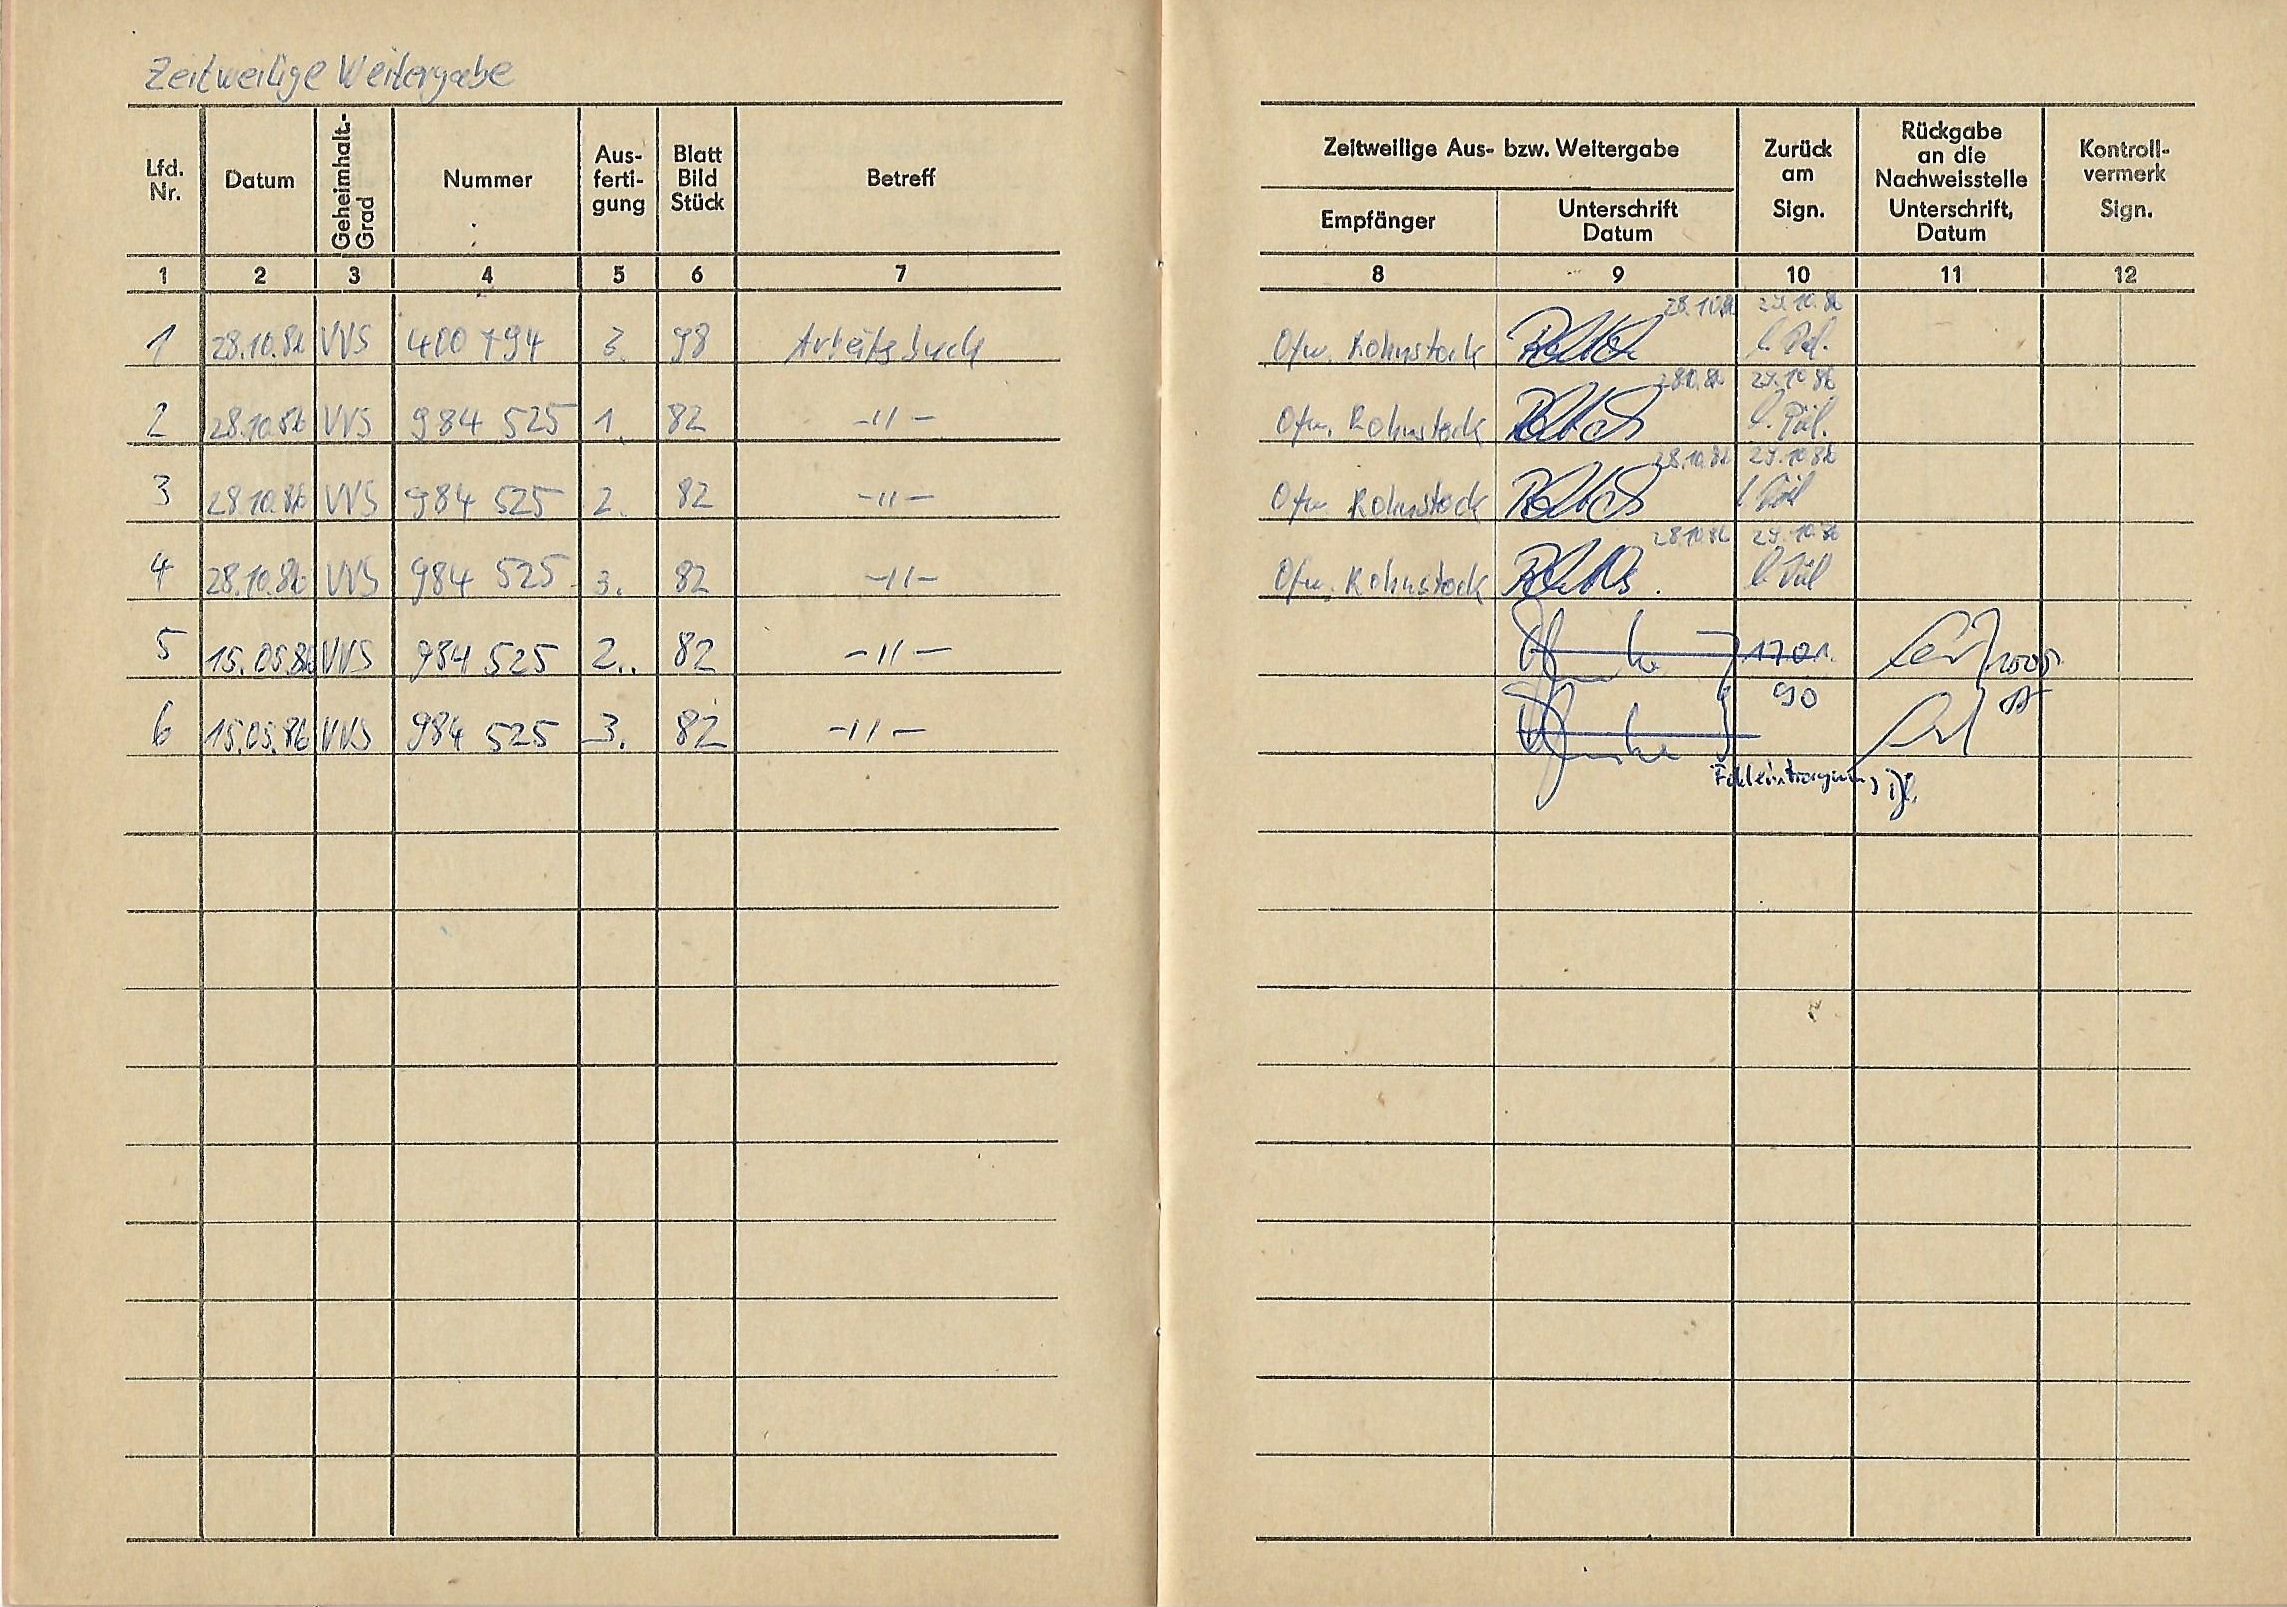 Zeitweilige Weitergabe
Lfd. Nr. Datum Geheimhalt.-Grad Nummer Aus-ferti-gung Blatt Bild Stück Betreff
1 2 3 4 5 6 7
1 28.10.86 VVS 400 794 3. 98 Arbeitsbuch
2 28.10.86 VVS 984 525 1. 82 -"-
3 28.10.86 VVS 984 525 2. 82 -"-
4 28.10.86 VVS 984 525 3. 82 -"-
5 15.05.86 VVS 984 525 2. 82 -"-
6 15.05.86 VVS 984 525 3. 82 -"-
Zeitweilige Aus- bzw. Weitergabe
Empfänger Unterschrift Datum
Zurück am Sign.
Rückgabe an die Nachweisstelle Unterschrift, Datum
Kontroll-vermerk Sign.
8 9 10 11 12
Ofw. Rohnstock 28.10.86 29.10.86
Ofw. Rohnstock 28.10.86 29.10.86
Ofw. Rohnstock 28.10.86 29.10.86
Ofw. Rohnstock 28.10.86 29.10.86
17.01.
90
Fehleintragung